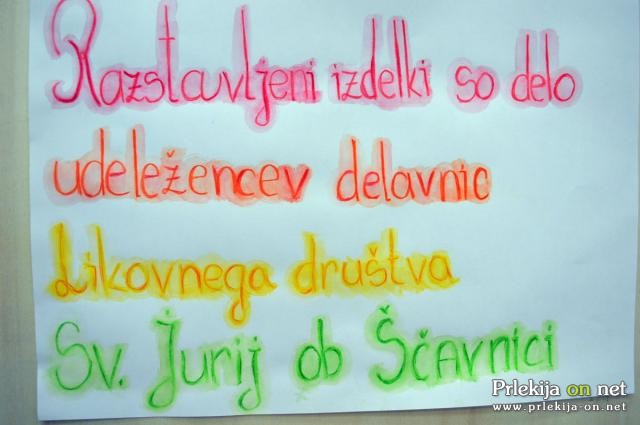 Razstavljeni izdelki so delo
udeležencev delavnic
Likovnega društva
Sv. Jurij ob Ščavnici
Prlekija on net
www.prlekija-on.net